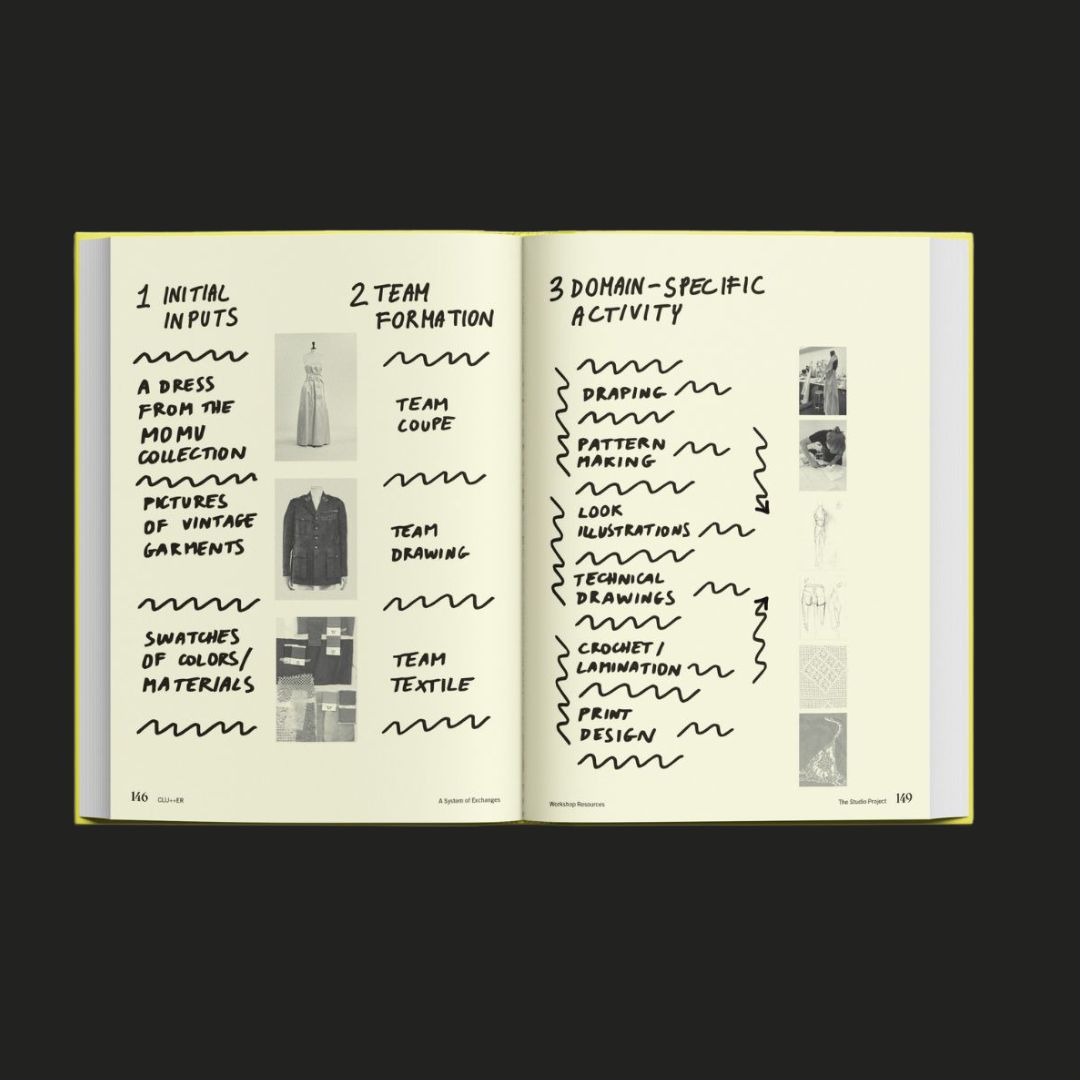 1 INITIAL
INPUTS
A DRESS
FROM THE
MOMU
COLLECTION
PICTURES
OF VINTAGE
GARMENTS
SWATCHES
OF COLORS/
MATERIALS
2 TEAM
FORMATION
TEAM
COUPE
TEAM
DRAWING
TEAM
TEXTILE
146 CLU++ER
A System of Exchanges
3 DOMAIN-SPECIFIC
ACTIVITY
DRAPING
PATTERN
MAKING
LOOK
ILLUSTRATIONS
TECHNICAL
DRAWINGS
CROCHET/
LAMINATION
PRINT
DESIGN
Workshop Resources
The Studio Project 149